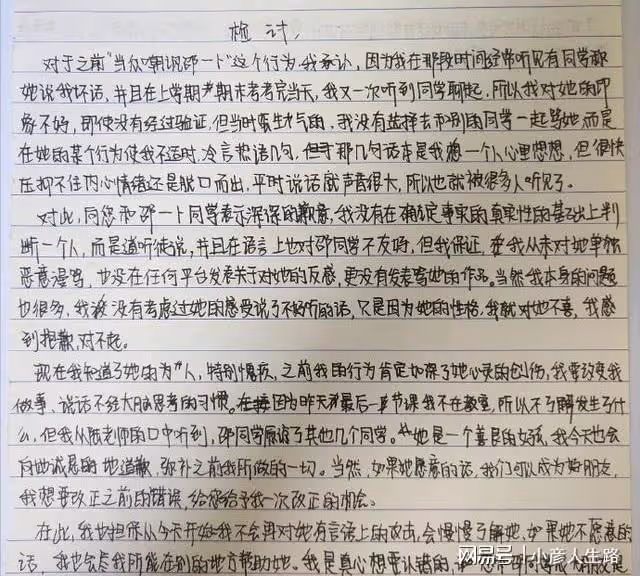 检讨,
对于之前"当众嘲讽邵一卜"这个行为,我承认,因为我在那段时间经常听见有同学称
她说我坏话,并且在上学期期末考考完当天,我又一次听到同学聊起,所以我对她的印
象不好,即使没有经过验证,但当时蛮生气的,我没有选择去和别的同学一起骂她,而是
在她的某个行为使我不适时,冷言热语几句,但于那几句话本是我想一个人心里想想,但很快
压抑不住内心情绪还是脱口而出,平时说话就声音很大,所以也就被很多人听见了。
对此,向您和邵一卜同学表示深深的歉意,我没有在确定事实的真实性的基础上判
断一个人,而是道听徒说,并且在语言上也对邵同学不友好,但我保证,我从未对她单独
恶意漫骂,也没在任何平台发表关于对她的反感,更没有发表骂她的作品,当然我本身的问题
也很多,我没有考虑过她的感受说了不好听的话,只是因为她的性格,我就对她不喜,我感
到抱歉,对不起。
现在我知道了她的为人,特别愧疚,之前我的行为肯定加深了她心灵的创伤,我要改变我
做事、说话不经大脑思考的习惯。因为昨天最后一节课我不在教室,所以不了解发生了什
么,但我从老师的口中听到,邵同学原谅了其他几个同学。她是一个善良的女孩,我今天也会
向她诚恳的地道歉,弥补之前我所做的一切。当然,如果她愿意的话,我们可以成为好朋友,
我想要改正之前的错误,给您给予我一次改正的机会。
在此,我也担保从今天开始我不会再对她有言语上的攻击,会慢慢了解她,如果她不愿意的
话,我也会尽我所能在别的地方帮助她。我是真心想要认错的,
网易号 | 小彦人生路